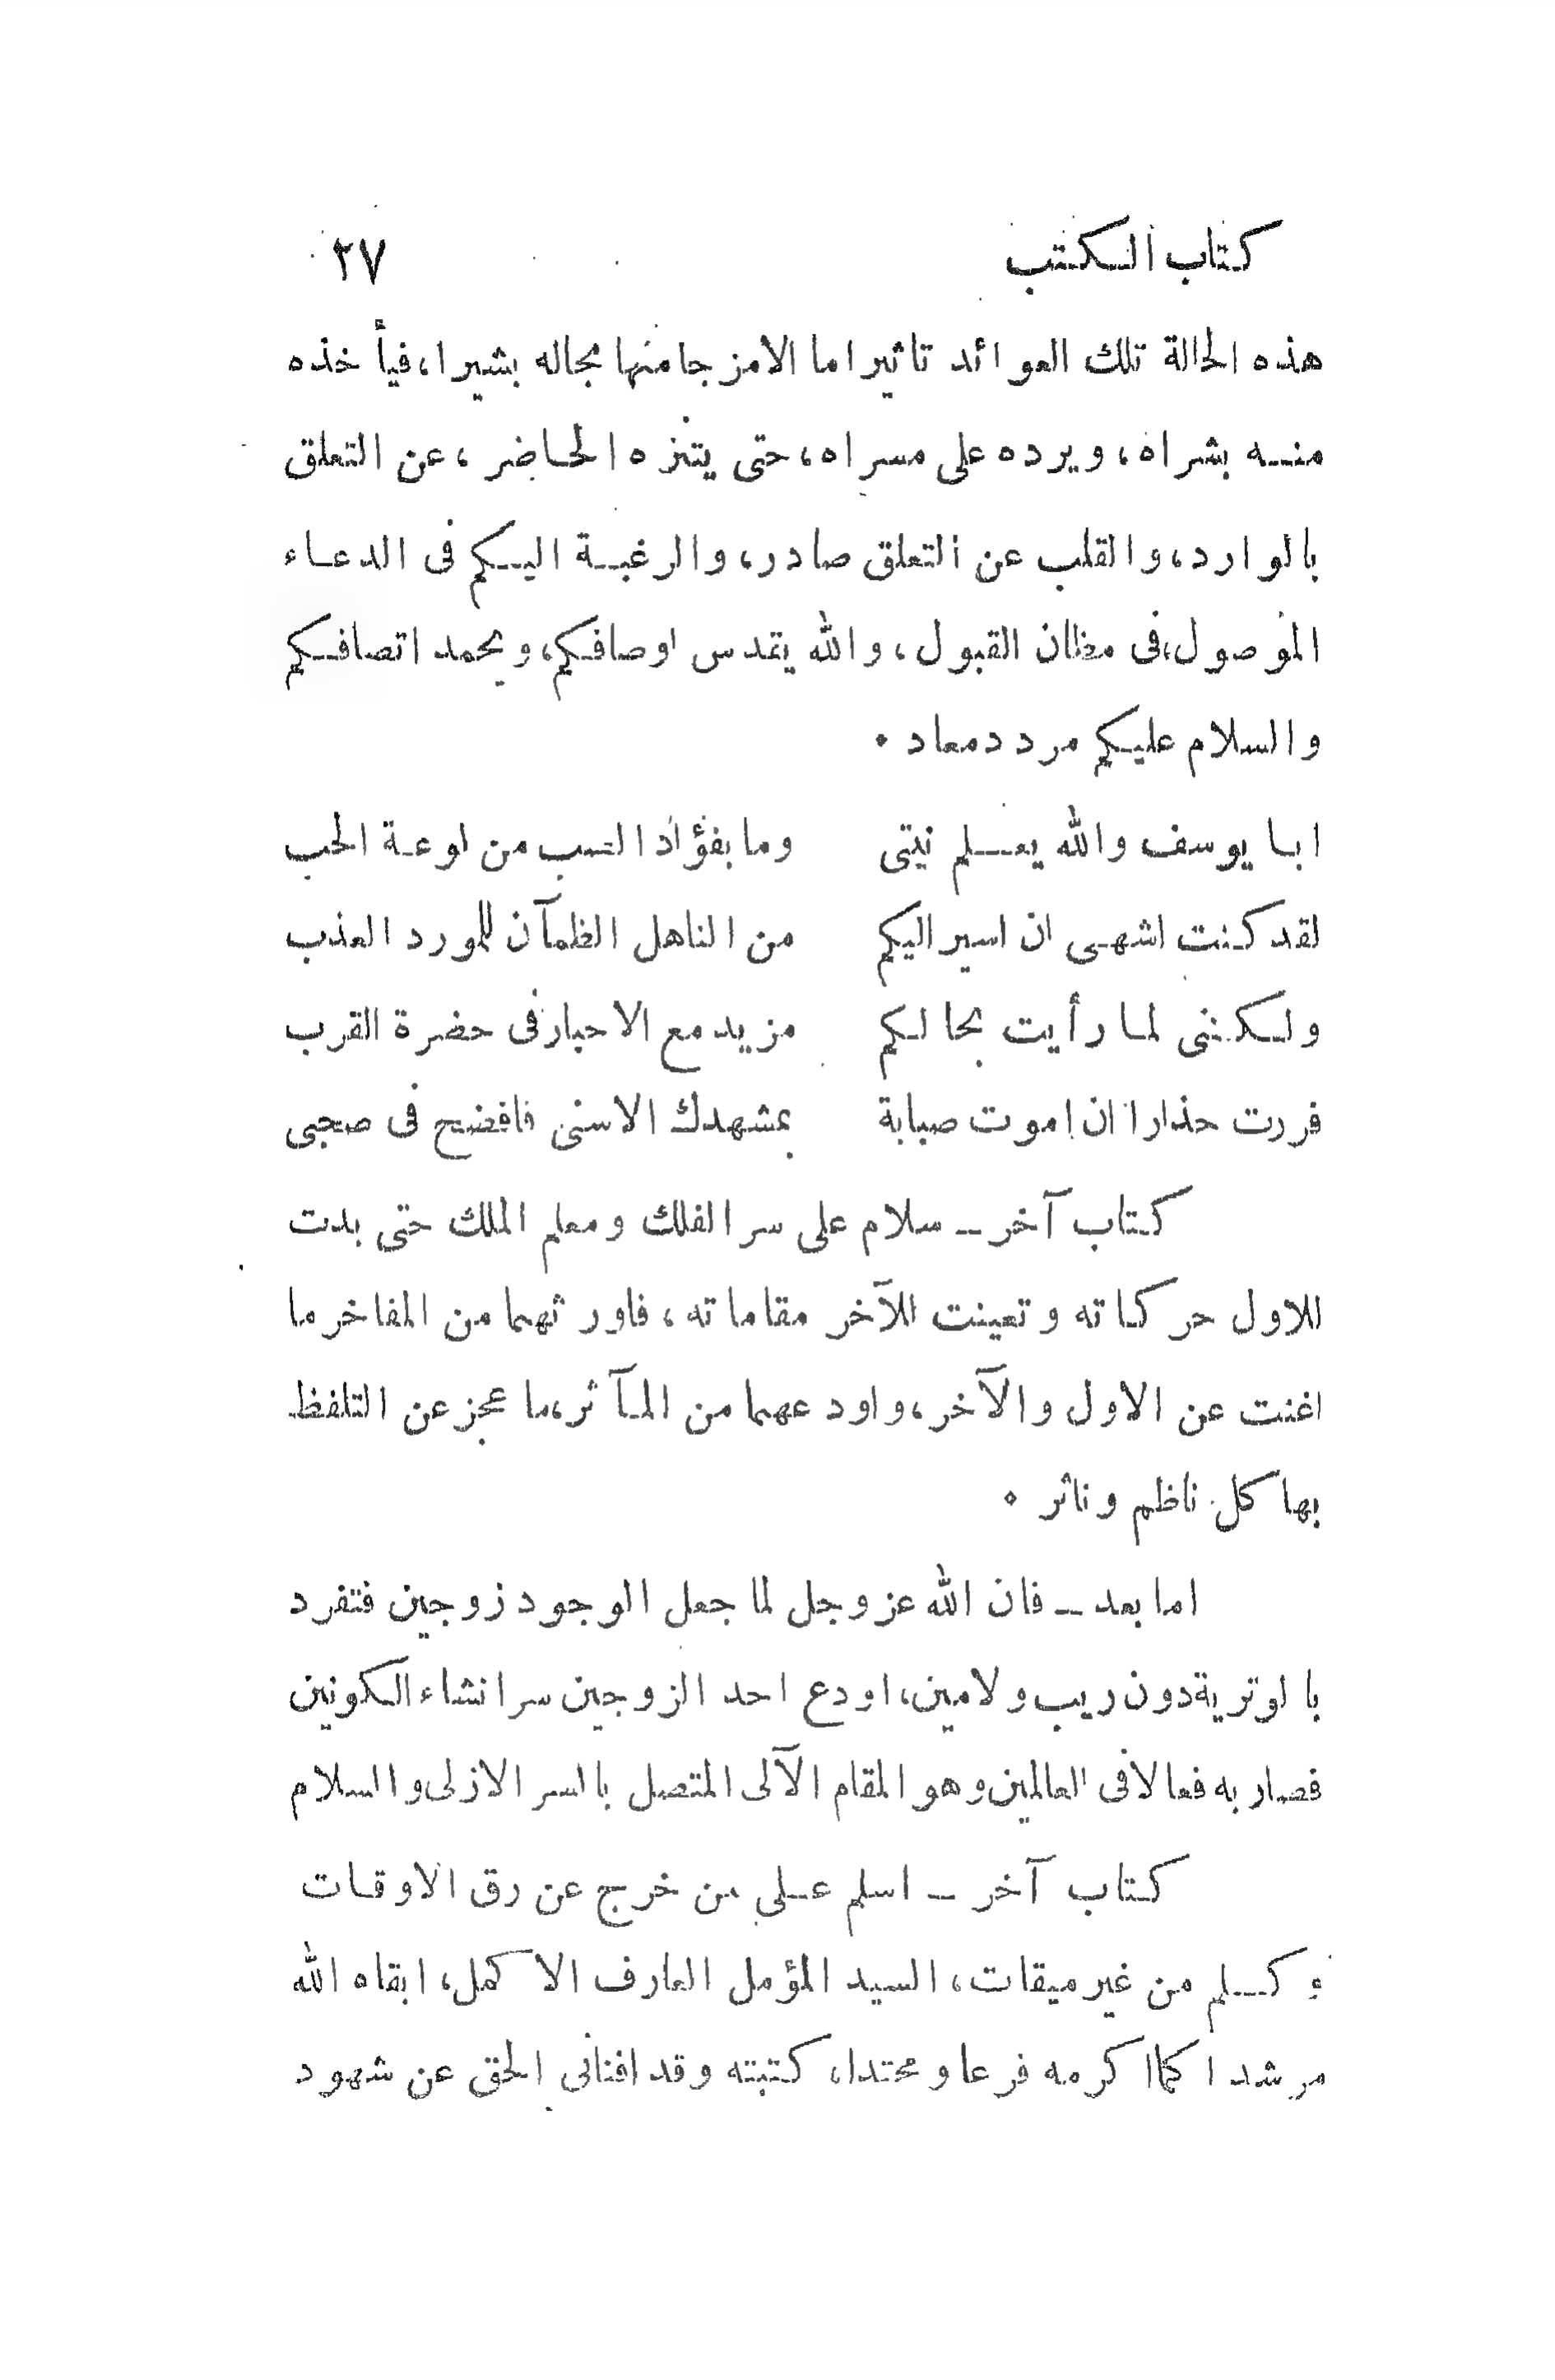 كتاب الكتب ٢٧
هذه الحالة تلك العوائد تاثيرا ما الا من جا منها بحاله بشيرا، فيأخذه
منه بشراه، ويرده على مسراه، حتى يتنزه الحاضر، عن التعلق
بالوارد، والقلب عن التعلق صادر، والرغبة اليكم فى الدعاء
الموصول، فى مظان القبول، والله يقدس اوصافكم، ويحمد اتصافكم
والسلام عليكم مردد معاد ٠
ابا يوسف والله يعلم نيتى وما بفؤاد الصب من لوعة الحب
لقد كنت اشهى ان اسير اليكم من الناهل الظمآن للمورد العذب
ولكننى لما رأيت بحالكم مزيد مع الاحبار فى حضرة القرب
فررت حذارا ان اموت صبابة بمشهدك الاسنى فافضح فى صحبى
كتاب آخر ــ سلام على سر الفلك ومعلم الملك حتى بدت
للاول حركاته وتعينت للآخر مقاماته، فاورثهما من المفاخر ما
اغنت عن الاول والآخر، واودعهما من المآثر، ما عجز عن التلفظ
بها كل ناظم وناثر ٠
اما بعد ــ فان الله عز وجل لما جعل الوجود زوجين فتفرد
بالوترية دون ريب ولا مين، اودع احد الزوجين سر انشاء الكونين
فصار به فعالا فى العالمين وهو المقام الآلى المتصل بالسر الازلى والسلام
كتاب آخر ــ اسلم على من خرج عن رق الاوقات
وكلم من غير ميقات، السيد المؤمل العارف الاكمل، ابقاه الله
مرشدا كما اكرمه فرعا ومحتدا، كتبته وقد افنانى الحق عن شهود